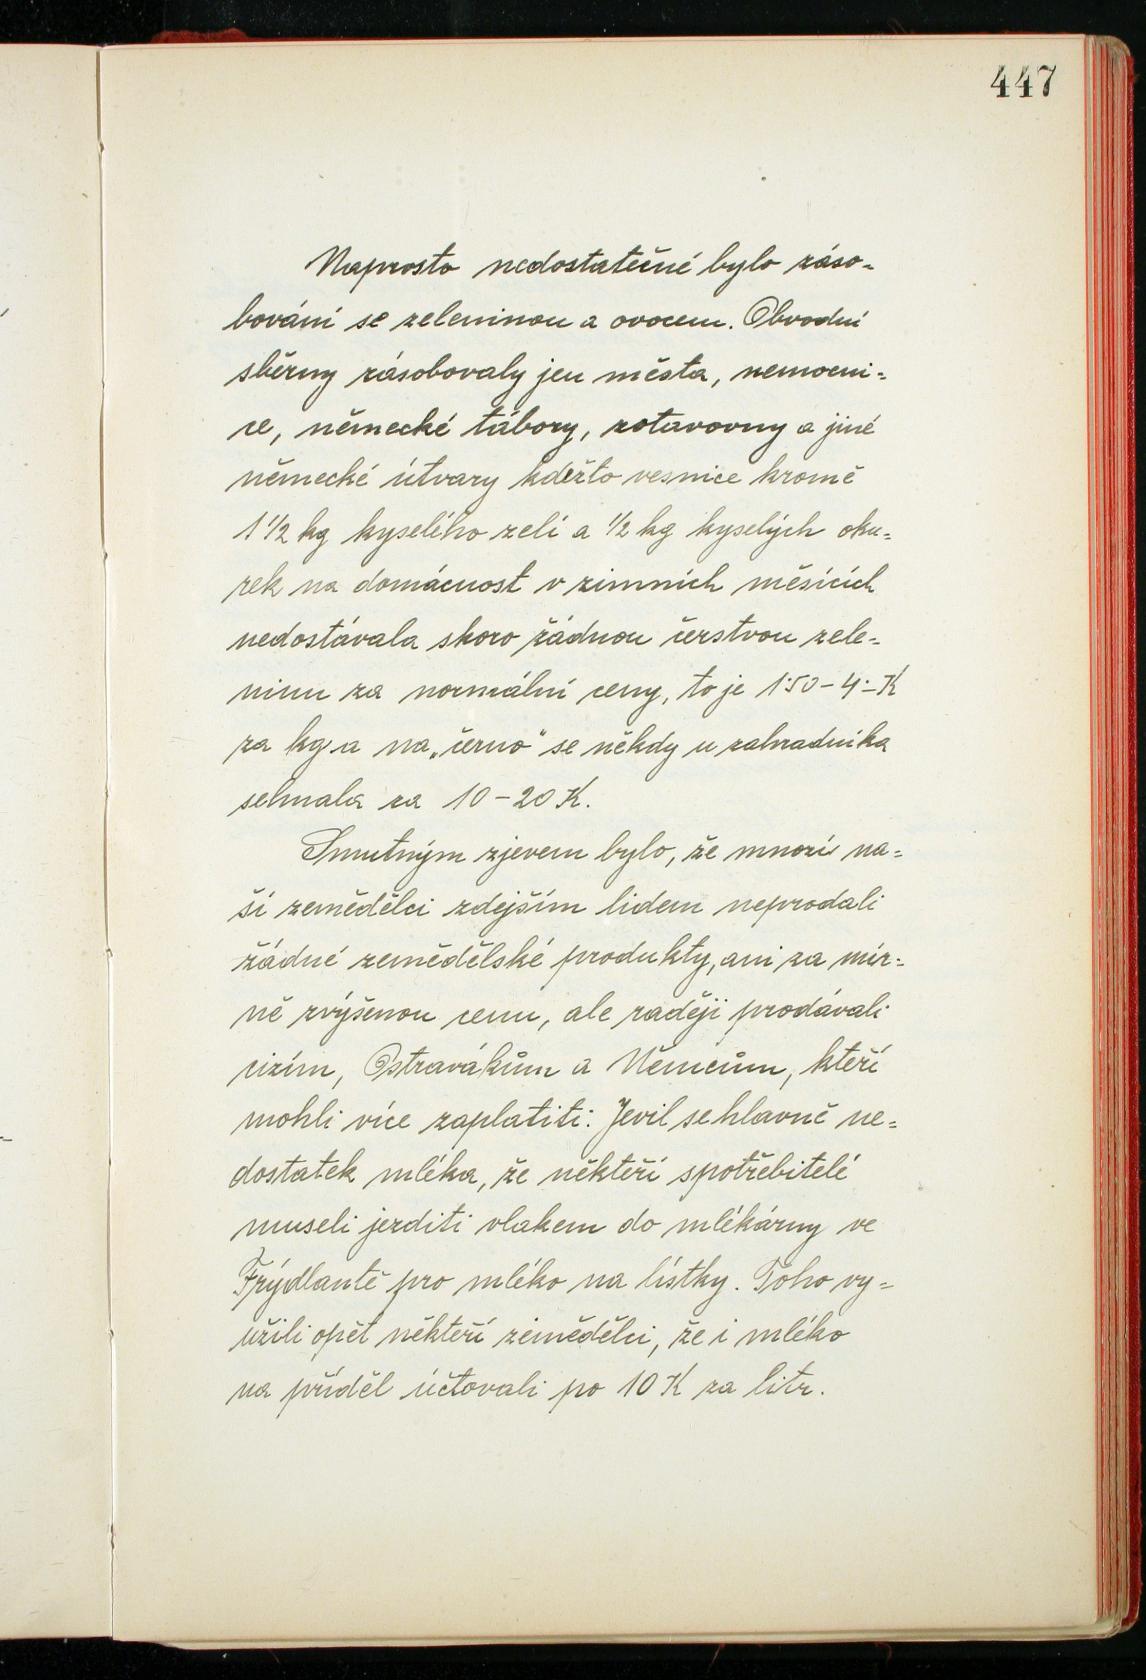 447
Naprosto nedostatečné bylo záso-
bování se zeleninou a ovocem. Obvodní
sběrny zásobovaly jen města, nemocni-
ce, německé tábory, zotavovny a jiné
německé útvary kdežto vesnice kromě
1 1/2 kg kyselého zelí a 1/2 kg kyselých oku-
rek na domácnost v zimních měsících
nedostávala skoro žádnou čerstvou zele-
ninu za normální ceny, to je 1·50 - 4·- K
za kg a na „černo“ se někdy u zahradníka
sehnala za 10 - 20 K.
Smutným zjevem bylo, že mnozí na-
ší zemědělci zdejším lidem neprodali
žádné zemědělské produkty, ani za mír-
ně zvýšenou cenu, ale raději prodávali
cizím, Ostravákům a Němcům, kteří
mohli více zaplatiti. Jevil se hlavně ne-
dostatek mléka, že někteří spotřebitelé
museli jezditi vlakem do mlékárny ve
Frýdlantě pro mléko na lístky. Toho vy-
užili opět někteří zemědělci, že i mléko
na příděl účtovali po 10 K za litr.